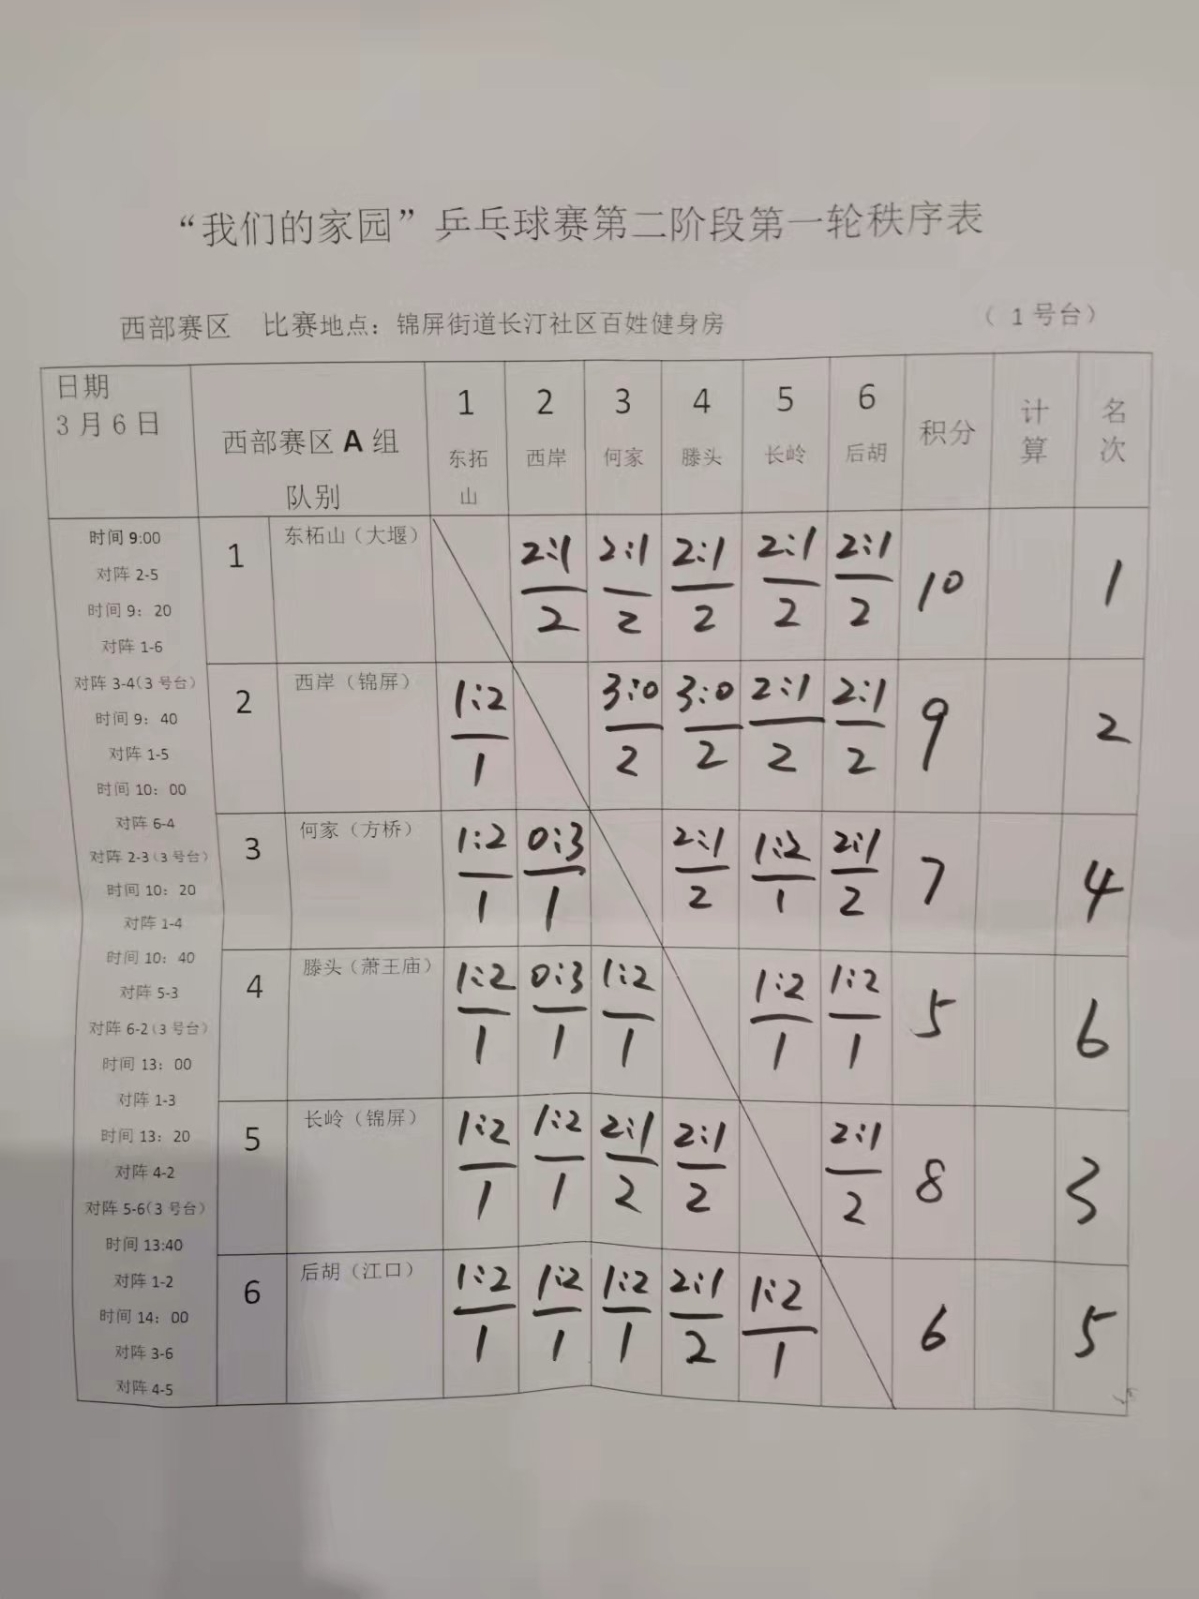 “我们的家园”乒乓球赛第二阶段第一轮秩序表
西部赛区 比赛地点：锦屏街道长汀社区百姓健身房 （ 1号台）
日期
3月6日
西部赛区 A 组
队别
1 2 3 4 5 6
东拓
山
西岸 何家 滕头 长岭 后胡
积分
计
算
名
次
时间 9:00
对阵 2-5
时间 9：20
对阵 1-6
对阵 3-4（3 号台）
时间 9：40
对阵 1-5
时间 10：00
对阵 6-4
对阵 2-3（3 号台）
时间 10：20
对阵 1-4
时间 10：40
对阵 5-3
对阵 6-2（3 号台）
时间 13：00
对阵 1-3
时间 13：20
对阵 4-2
对阵 5-6（3 号台）
时间 13:40
对阵 1-2
时间 14：00
对阵 3-6
对阵 4-5
1 东柘山（大堰）
2:1 2:1 2:1 2:1 2:1
2 2 2 2 2
10 1
2 西岸（锦屏）
1:2 3:0 3:0 2:1 2:1
1 2 2 2 2
9 2
3 何家（方桥）
1:2 0:3 2:1 1:2 2:1
1 1 2 1 2
7 4
4 滕头（萧王庙）
1:2 0:3 1:2 1:2 1:2
1 1 1 1 1
5 6
5 长岭（锦屏）
1:2 1:2 2:1 2:1 2:1
1 1 2 2 2
8 3
6 后胡（江口）
1:2 1:2 1:2 2:1 1:2
1 1 1 2 1
6 5